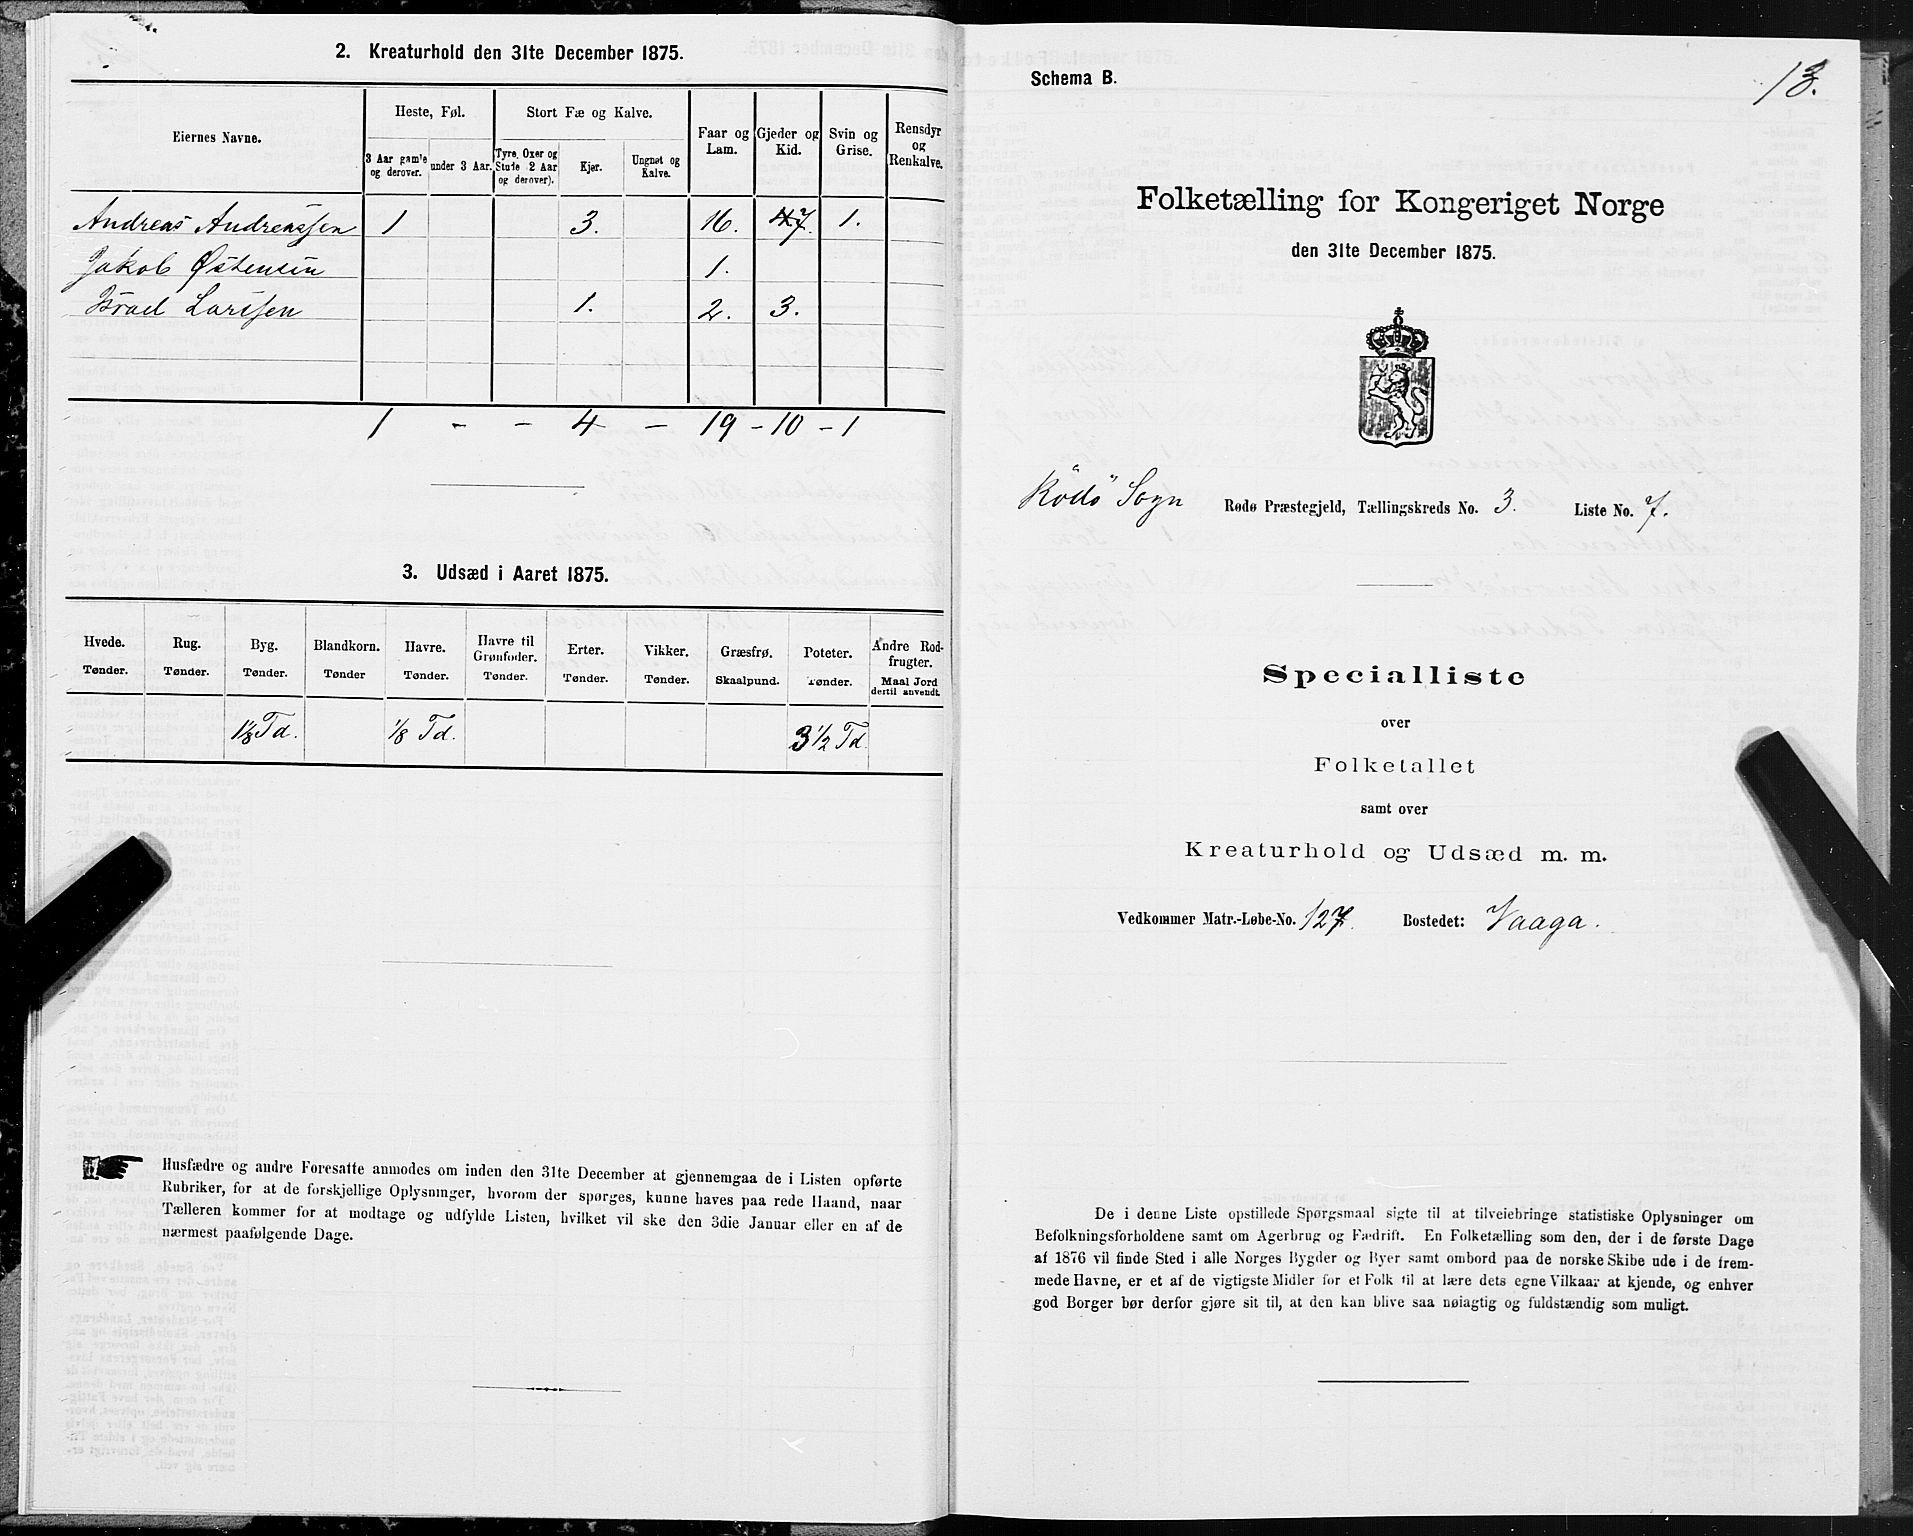 2. Kreaturhold den 31te December 1875.
Eiernes Navne.
Heste, Føl.
Stort Fæ og Kalve.
Faar og Lam.
Gjeder og Kid.
Svin og Grise.
Rensdyr og Renkalve.
3 Aar gamle og derover.
under 3 Aar.
Tyre, Oxer og Stude (2 Aar og derover).
Kjør.
Ungnøt og Kalve.
Andreas Andreassen 1 3. 16. 7. 1.
Jakob Østensen 1.
Larssen 1. 2. 3.
1 - - 4 - 19 - 10 - 1
3. Udsæd i Aaret 1875.
Hvede. Tønder.
Rug. Tønder.
Byg. Tønder.
Blandkorn. Tønder
Havre. Tønder.
Havre til Grønfoder. Tønder.
Erter. Tønder.
Vikker. Tønder.
Græsfrø. Skaalpund.
Poteter. Tønder.
Andre Rodfrugter. Maal Jord dertil anvendt.
1⅛ Td. ⅛ Td. 3 ½ Td.
Husfædre og andre Foresatte anmodes om inden den 31te December at gjennemgaa de i Listen opførte
Rubriker, for at de forskjellige Oplysninger, hvorom der spørges, kunne haves paa rede Haand, naar
Tælleren kommer for at modtage og udfylde Listen, hvilket vil ske den 3die Januar eller en af de
nærmest paafølgende Dage.
13.
Schema B.
Folketælling for Kongeriget Norge
den 31te December 1875.
Rödö Sogn Rødø Præstegjeld, Tællingskreds No. 3. Liste No. 7.
Specialliste
over
Folketallet
samt over
Kreaturhold og Udsæd m. m.
Vedkommer Matr.-Løbe-No. 127. Bostedet: Vaaga.
De i denne Liste opstillede Spørgsmaal sigte til at tilveiebringe statistiske Oplysninger om
Befolkningsforholdene samt om Agerbrug og Fædrift. En Folketælling som den, der i de første Dage
af 1876 vil finde Sted i alle Norges Bygder og Byer samt ombord paa de norske Skibe ude i de frem-
mede Havne, er et af de vigtigste Midler for et Folk til at lære dets egne Vilkaar at kjende, og enhver
god Borger bør derfor gjøre sit til, at den kan blive saa nøiagtig og fuldstændig som muligt.